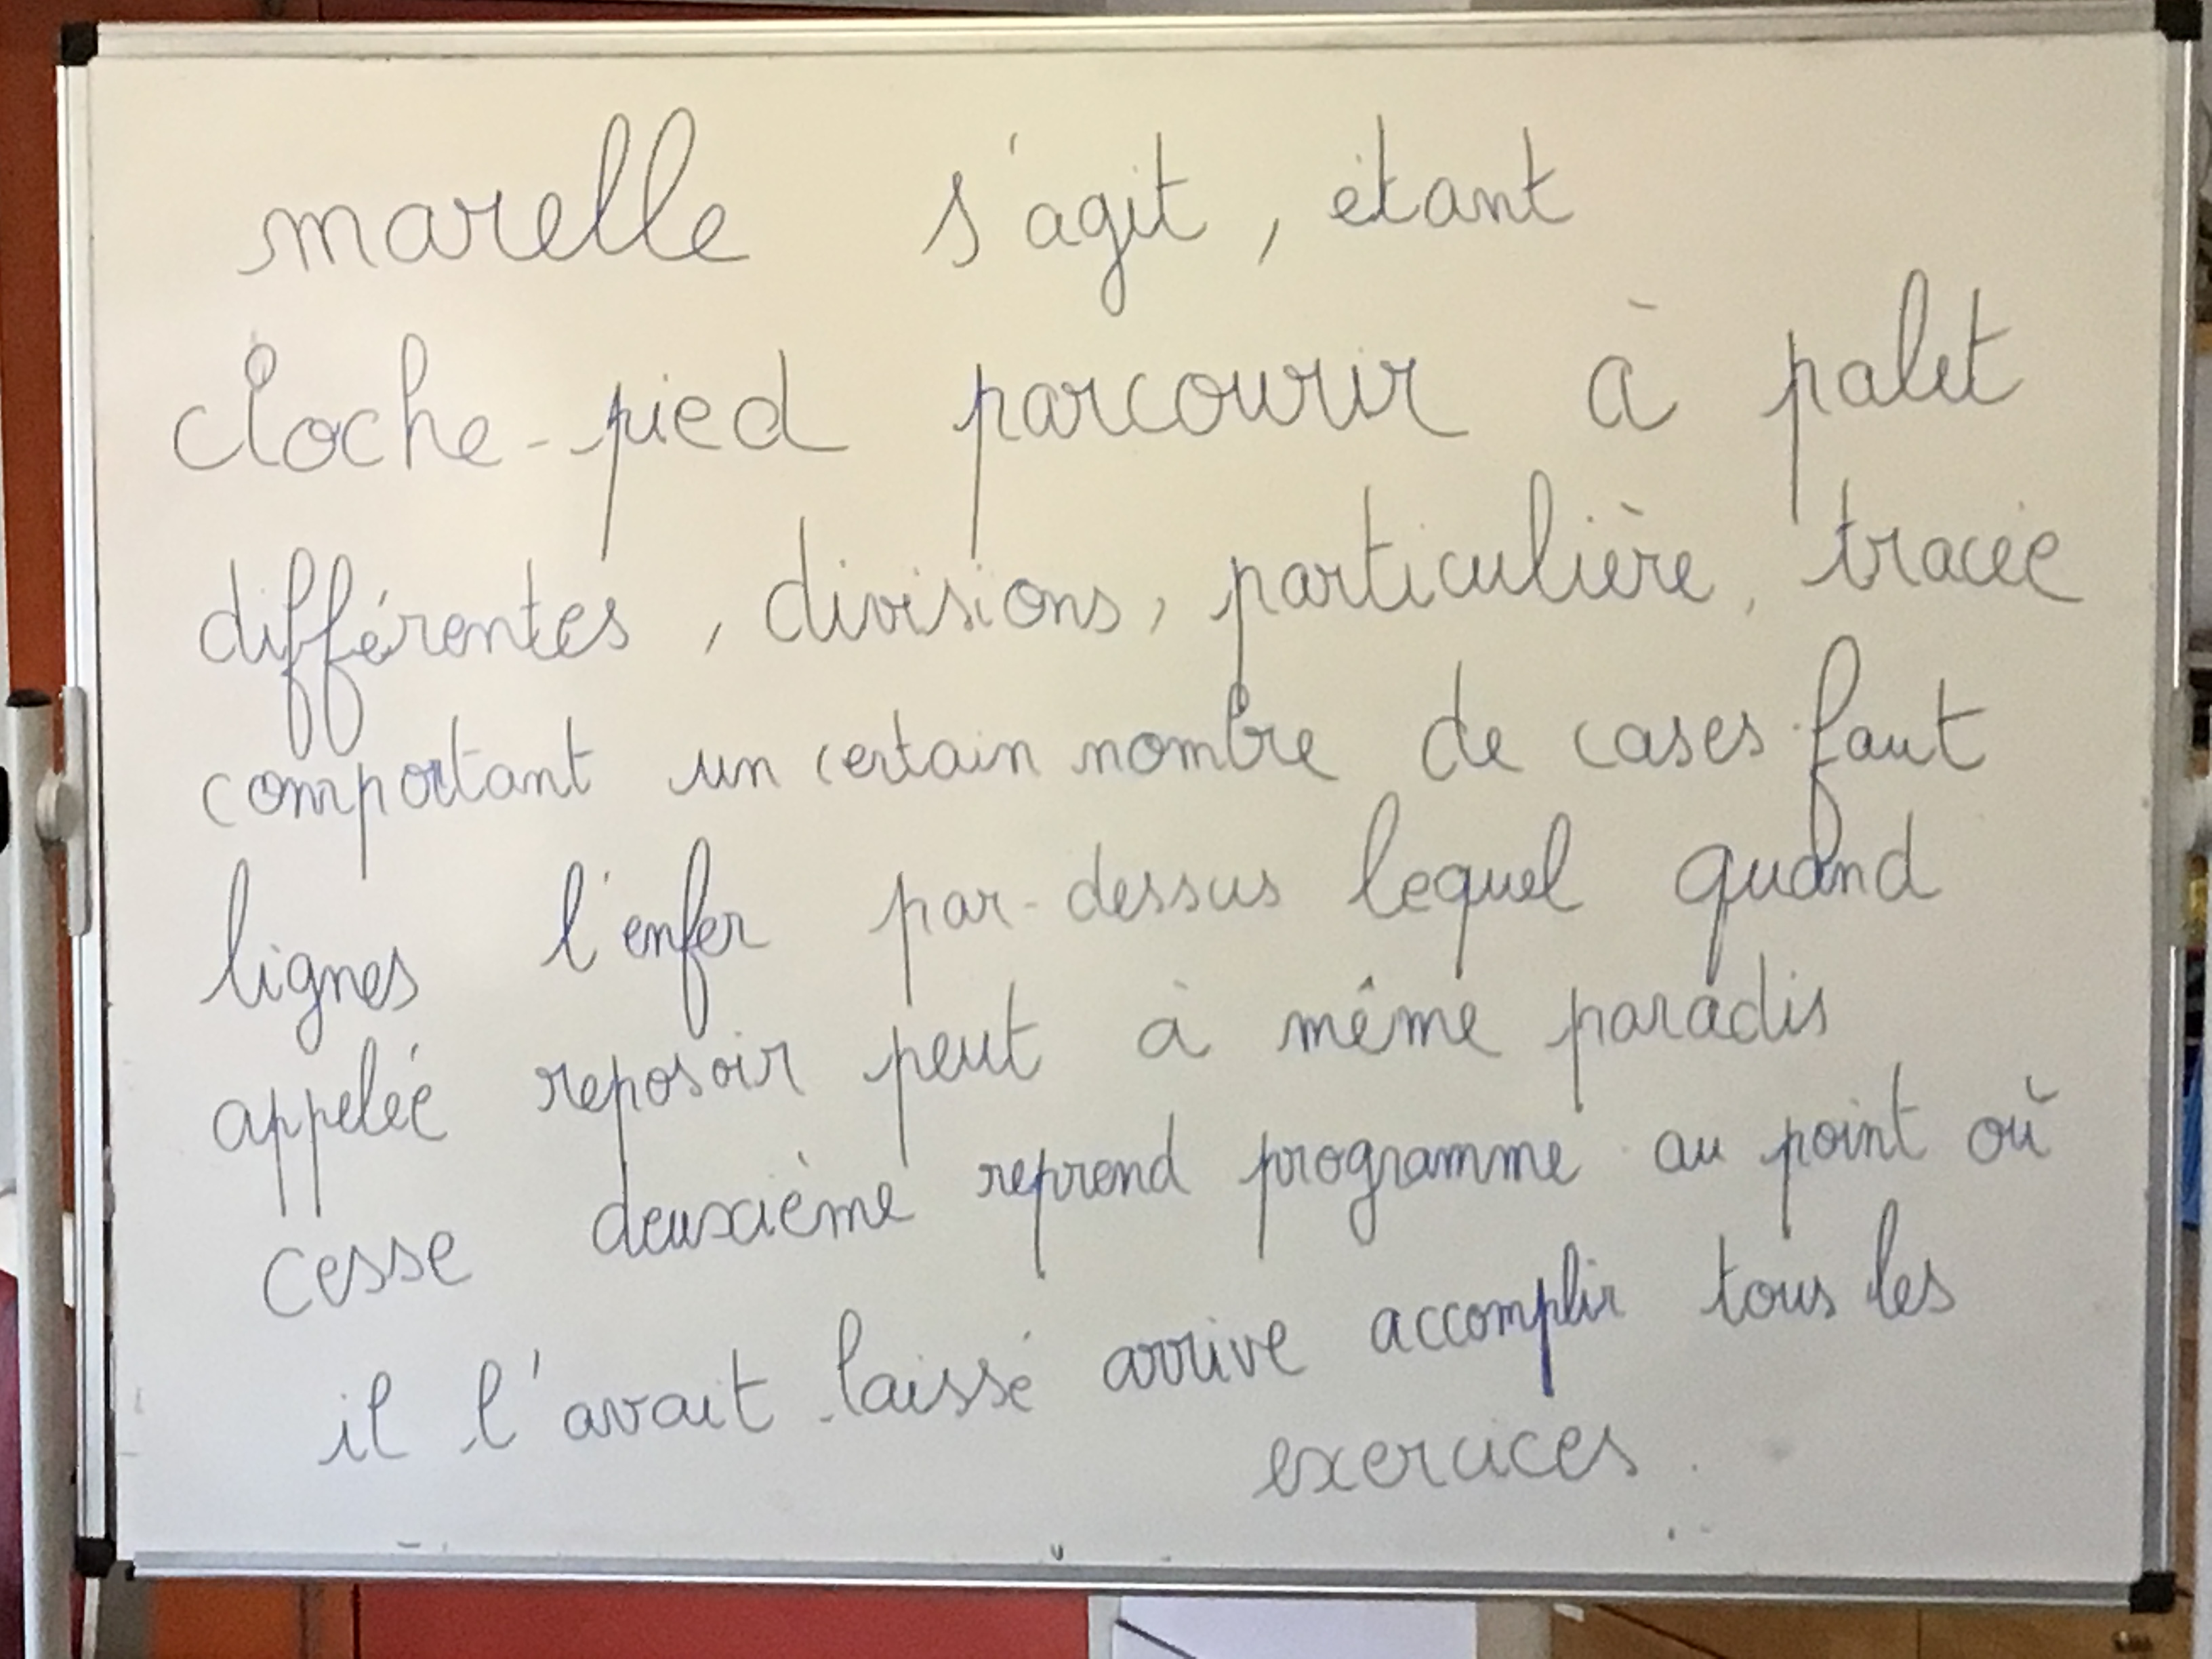 marelle s'agit, étant
cloche-pied parcourir à palet
différentes, divisions, particulière, tracée
comportant un certain nombre de cases faut
lignes l'enfer par-dessus lequel quand
appelée reposoir peut à même paradis
cesse deuxième reprend programme au point où
il l'avait laissé arrive accomplir tous les
exercices.